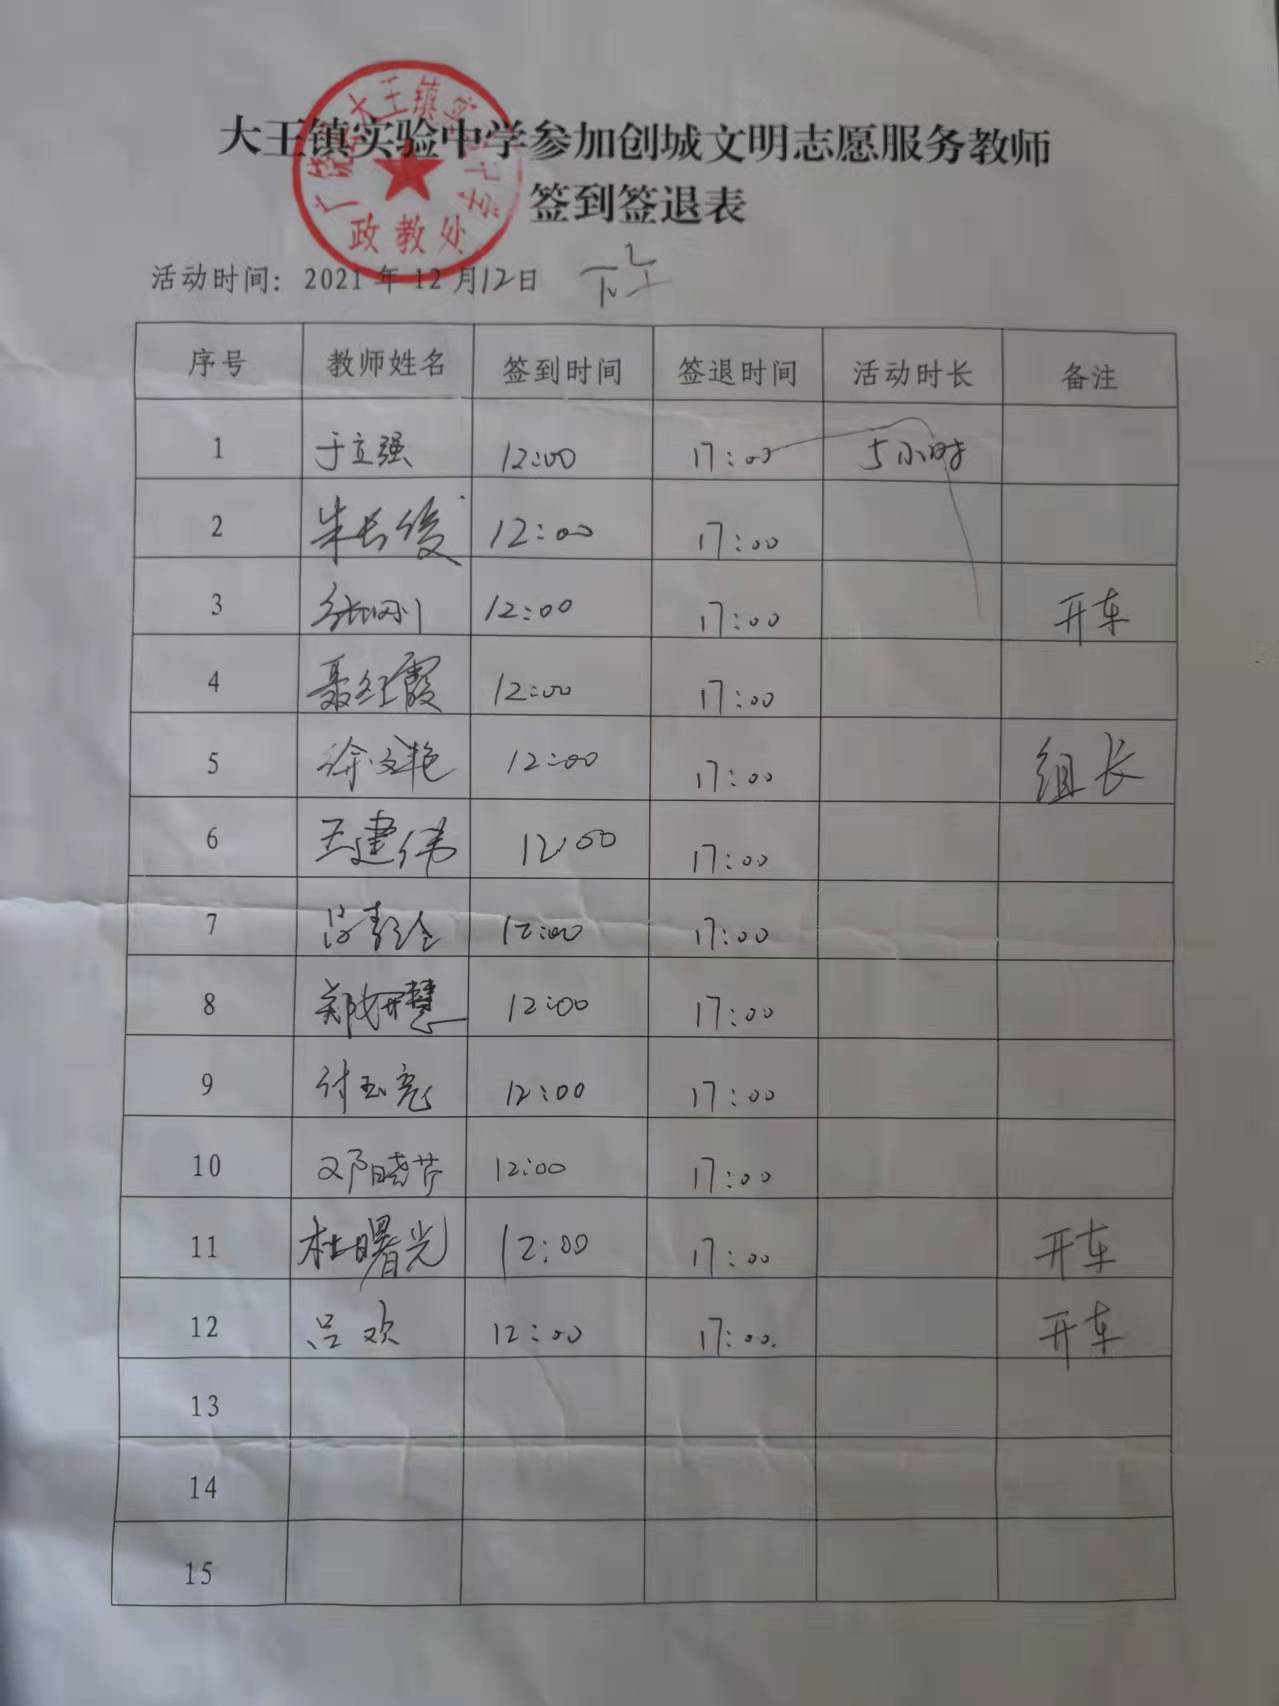 大王镇实验中学参加创城文明志愿服务教师
签到签退表
政教处
活动时间: 2021 年 12 月12日 下午
序号 教师姓名 签到时间 签退时间 活动时长 备注
1 于立强 12:00 17:00 5小时
2 朱长俊 12:00 17:00
3 张刚 12:00 17:00 开车
4 聂红霞 12:00 17:00
5 徐文艳 12:00 17:00 组长
6 王建伟 12:00 17:00
7 12:00 17:00
8 郑妍慧 12:00 17:00
9 付玉亮 12:00 17:00
10 邓晓芹 12:00 17:00
11 杜曙光 12:00 17:00 开车
12 吕欢 12:00 17:00 开车
13
14
15